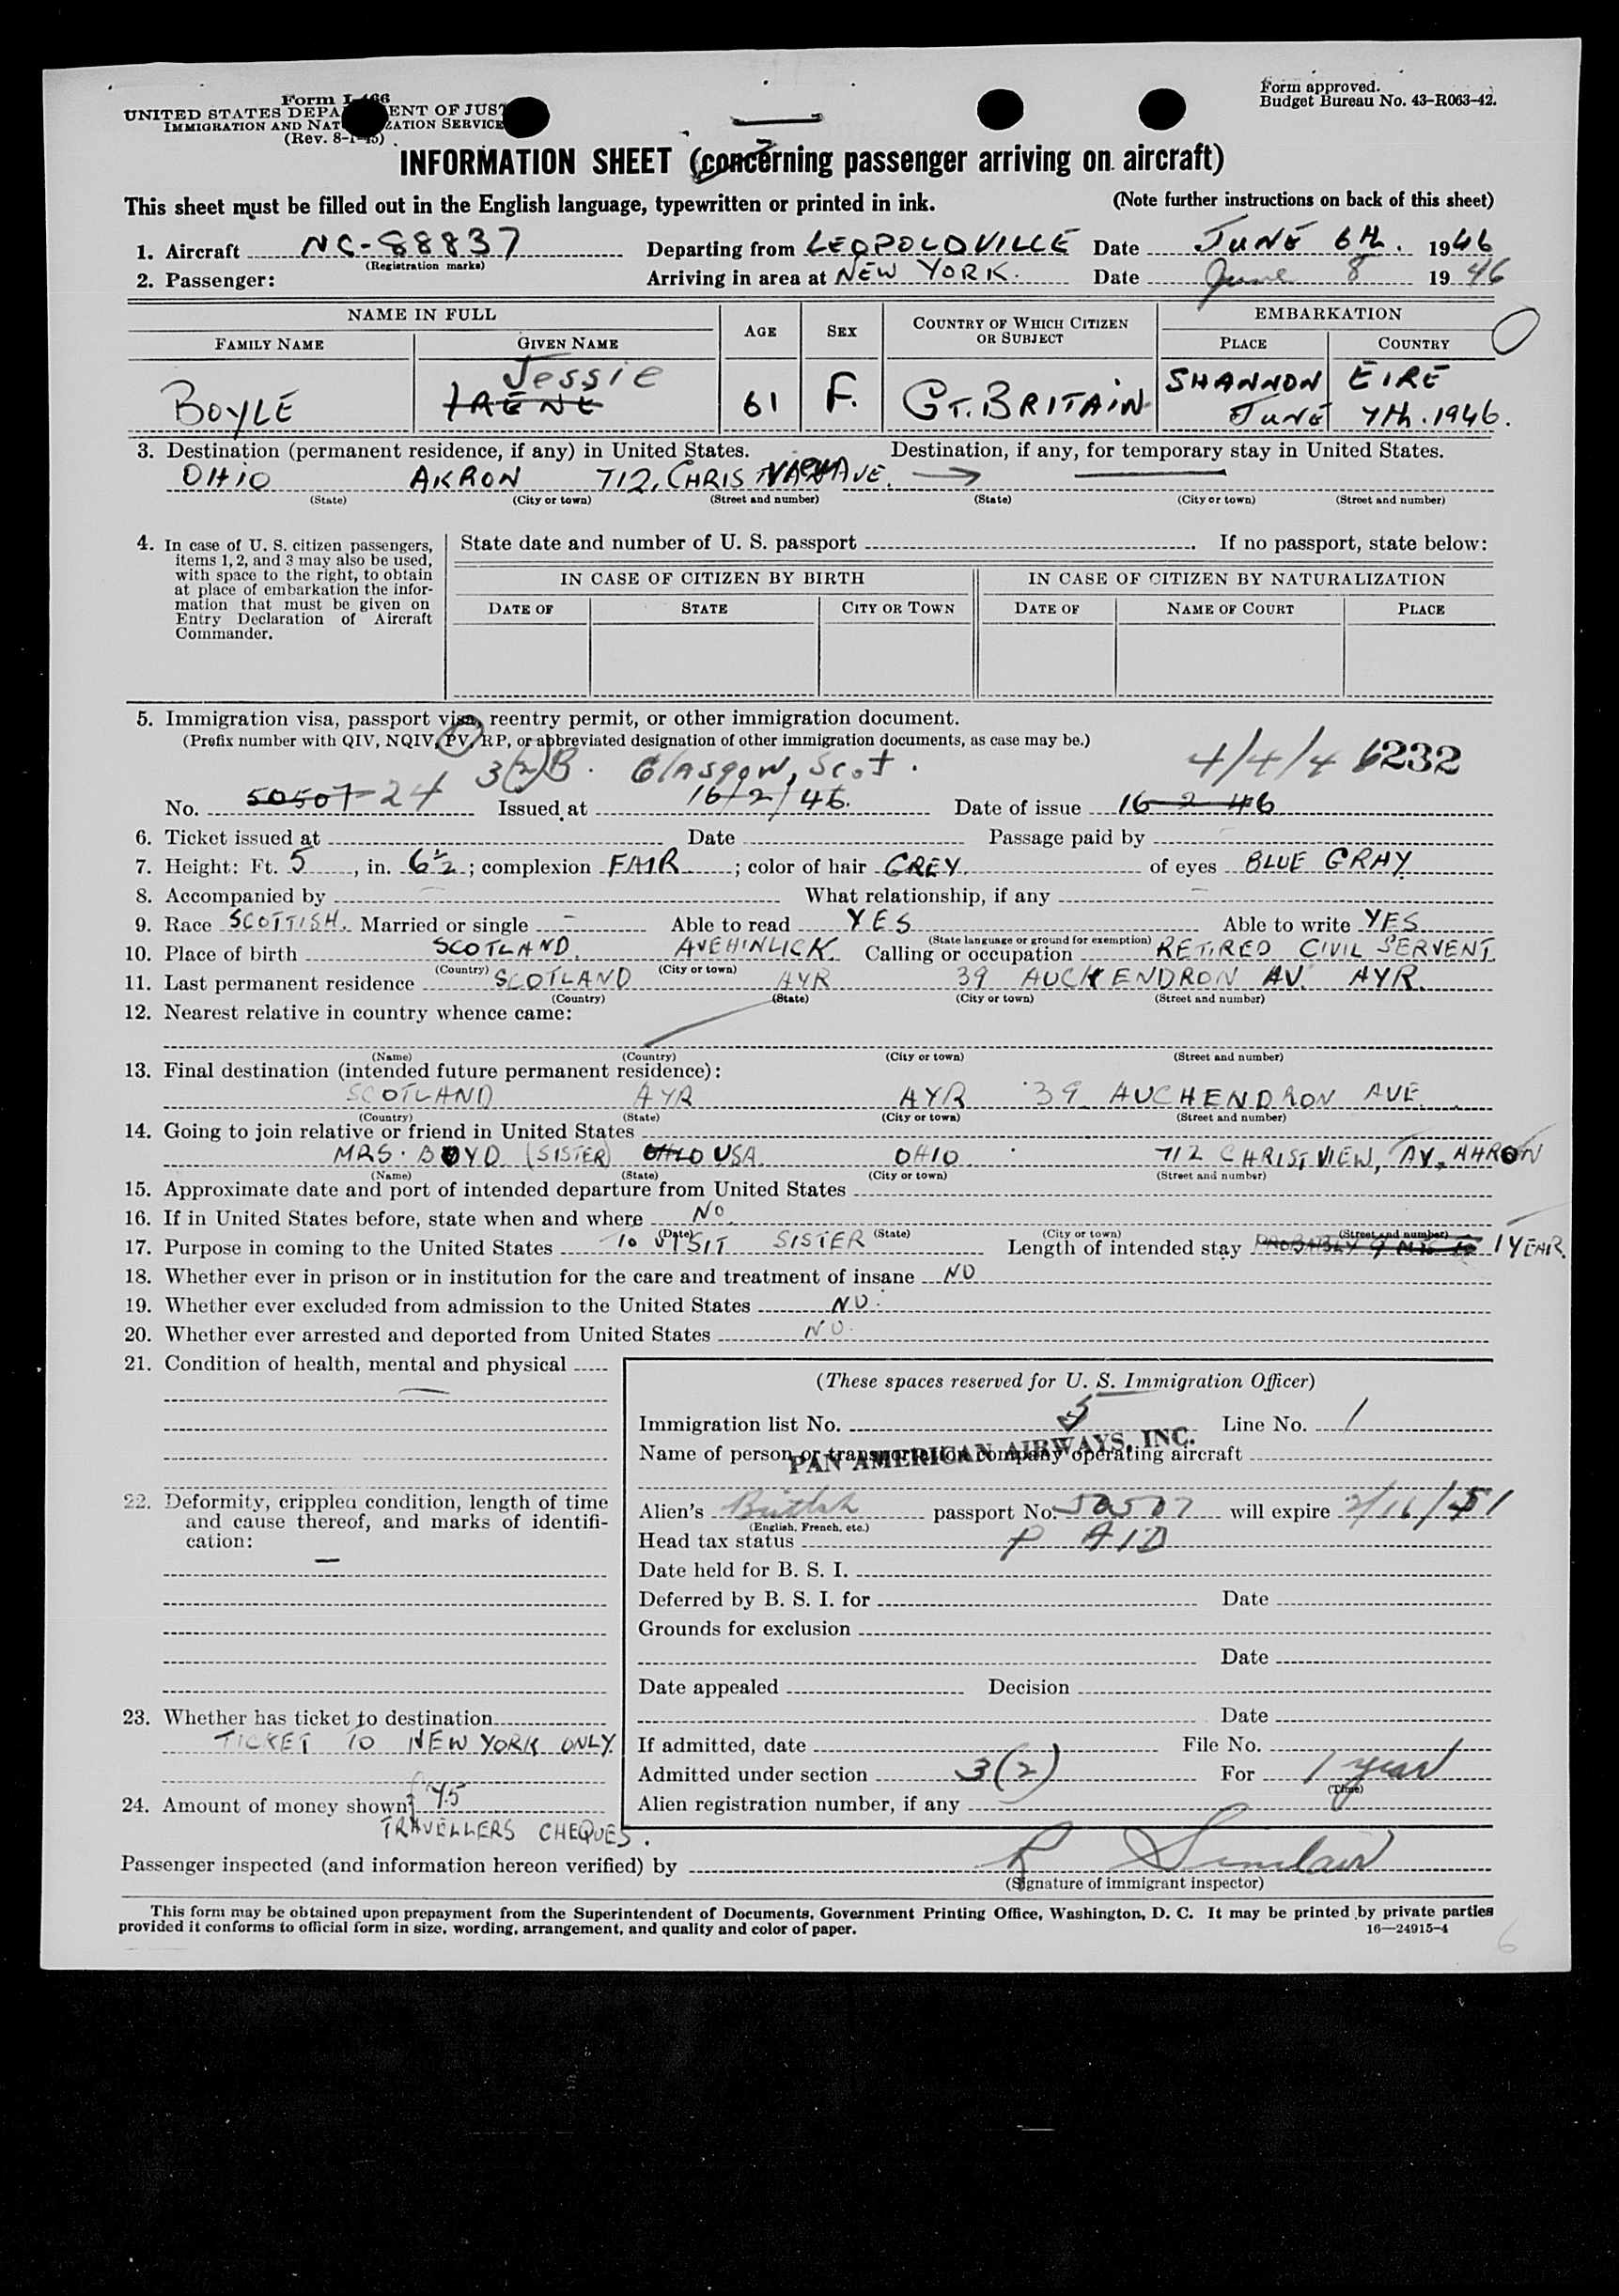 Form I-466
UNITED STATES DEPA ENT OF JUST
IMMIGRATION AND NAT ZATION SERVICE
(Rev. 8-1-45)
Form approved.
Budget Bureau No. 43-R063-42.
INFORMATION SHEET (concerning passenger arriving on aircraft)
This sheet must be filled out in the English language, typewritten or printed in ink. (Note further instructions on back of this sheet)
1. Aircraft NC-88837 Departing from LEOPOLDVILLE Date JUNE 6th. 1946
(Registration marks)
2. Passenger: Arriving in area at NEW YORK. Date June 8 1946
NAME IN FULL AGE SEX COUNTRY OF WHICH CITIZEN OR SUBJECT EMBARKATION
FAMILY NAME GIVEN NAME PLACE COUNTRY
Jessie
BOYLE IRENE 61 F. GT. BRITAIN SHANNON EIRE
JUNE 7th. 1946.
3. Destination (permanent residence, if any) in United States. Destination, if any, for temporary stay in United States.
OHIO AKRON 712, CHRIS AVE.
(State) (City or town) (Street and number) (State) (City or town) (Street and number)
4. In case of U. S. citizen passengers,
items 1, 2, and 3 may also be used,
with space to the right, to obtain
at place of embarkation the infor-
mation that must be given on
Entry Declaration of Aircraft
Commander.
State date and number of U. S. passport . If no passport, state below:
IN CASE OF CITIZEN BY BIRTH IN CASE OF CITIZEN BY NATURALIZATION
DATE OF STATE CITY OR TOWN DATE OF NAME OF COURT PLACE
5. Immigration visa, passport visa, reentry permit, or other immigration document.
(Prefix number with QIV, NQIV, PV, RP, or abbreviated designation of other immigration documents, as case may be.)
3(2)B. Glasgow, Scot. 4/4/46 6232
No. 50507 24 Issued at 16/2/46. Date of issue 16 2 46
6. Ticket issued at Date Passage paid by
7. Height: Ft. 5, in. 6½; complexion FAIR; color of hair GREY. of eyes BLUE GRAY
8. Accompanied by What relationship, if any
9. Race SCOTTISH. Married or single - Able to read YES Able to write YES
(State language or ground for exemption)
10. Place of birth SCOTLAND. AVEHINLICK. Calling or occupation RETIRED CIVIL SERVENT.
(Country) (City or town)
11. Last permanent residence SCOTLAND AYR 39 AUCHENDRON AV. AYR.
(Country) (State) (City or town) (Street and number)
12. Nearest relative in country whence came:
(Name) (Country) (City or town) (Street and number)
13. Final destination (intended future permanent residence):
SCOTLAND AYR AYR 39 AUCHENDRON AVE.
(Country) (State) (City or town) (Street and number)
14. Going to join relative or friend in United States
MRS. BOYD (SISTER) OHIO USA. OHIO 712 CHRIST VIEW, AV. AKRON
(Name) (State) (City or town) (Street and number)
15. Approximate date and port of intended departure from United States
16. If in United States before, state when and where NO.
(Date) (State) (City or town) (Street and number)
17. Purpose in coming to the United States TO VISIT SISTER Length of intended stay PROBABLY 9 MTS to 1 YEAR.
18. Whether ever in prison or in institution for the care and treatment of insane NO
19. Whether ever excluded from admission to the United States NO.
20. Whether ever arrested and deported from United States NO.
21. Condition of health, mental and physical
(These spaces reserved for U. S. Immigration Officer)
Immigration list No. 5 Line No. 1
Name of person or transportation company operating aircraft
PAN AMERICAN AIRWAYS, INC.
22. Deformity, crippled condition, length of time
and cause thereof, and marks of identifi-
cation:
Alien's British passport No. 50507 will expire 2/16/51
(English, French, etc.)
Head tax status PAID
Date held for B. S. I.
Deferred by B. S. I. for Date
Grounds for exclusion
Date
Date appealed Decision
Date
23. Whether has ticket to destination
TICKET TO NEW YORK ONLY.
If admitted, date File No.
Admitted under section 3(2) For 1 year
(Time)
24. Amount of money shown 75
TRAVELLERS CHEQUES.
Alien registration number, if any
Passenger inspected (and information hereon verified) by R Sinclair
(Signature of immigrant inspector)
This form may be obtained upon prepayment from the Superintendent of Documents, Government Printing Office, Washington, D. C. It may be printed by private parties
provided it conforms to official form in size, wording, arrangement, and quality and color of paper. 16—24915-4
6